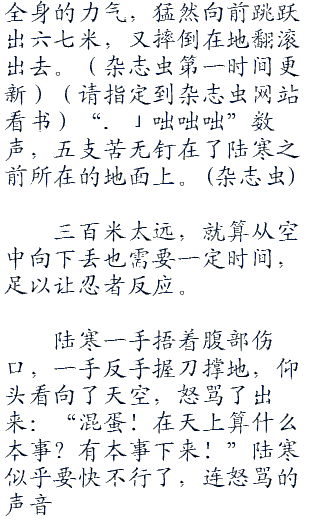 全身的力气，猛然向前跳跃
出六七米，又摔倒在地翻滚
出去。（杂志虫第一时间更
新）（请指定到杂志虫网站
看书）“．」咄咄咄”数
声，五支苦无钉在了陆寒之
前所在的地面上。(杂志虫)
三百米太远，就算从空
中向下丢也需要一定时间，
足以让忍者反应。
陆寒一手捂着腹部伤
口，一手反手握刀撑地，仰
头看向了天空，怒骂了出
来：“混蛋！在天上算什么
本事？有本事下来！”陆寒
似乎要快不行了，连怒骂的
声音